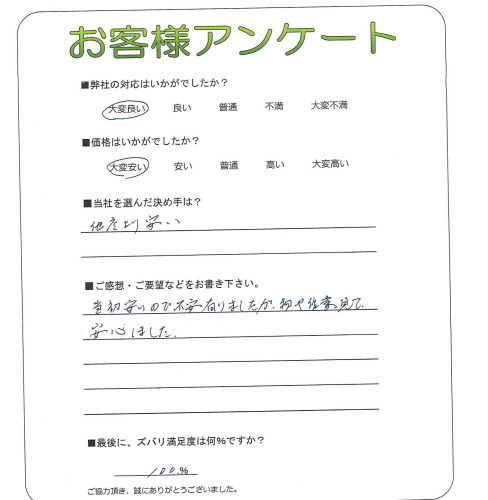 お客様アンケート
■弊社の対応はいかがでしたか？
大変良い 良い 普通 不満 大変不満
■価格はいかがでしたか？
大変安い 安い 普通 高い 大変高い
■当社を選んだ決め手は？
他店より安い
■ご感想・ご要望などをお書き下さい。
当初安いので不安有りましたが、物や作業を見て、
安心しました。
■最後に、ズバリ満足度は何%ですか？
100%
ご協力頂き、誠にありがとうございました。